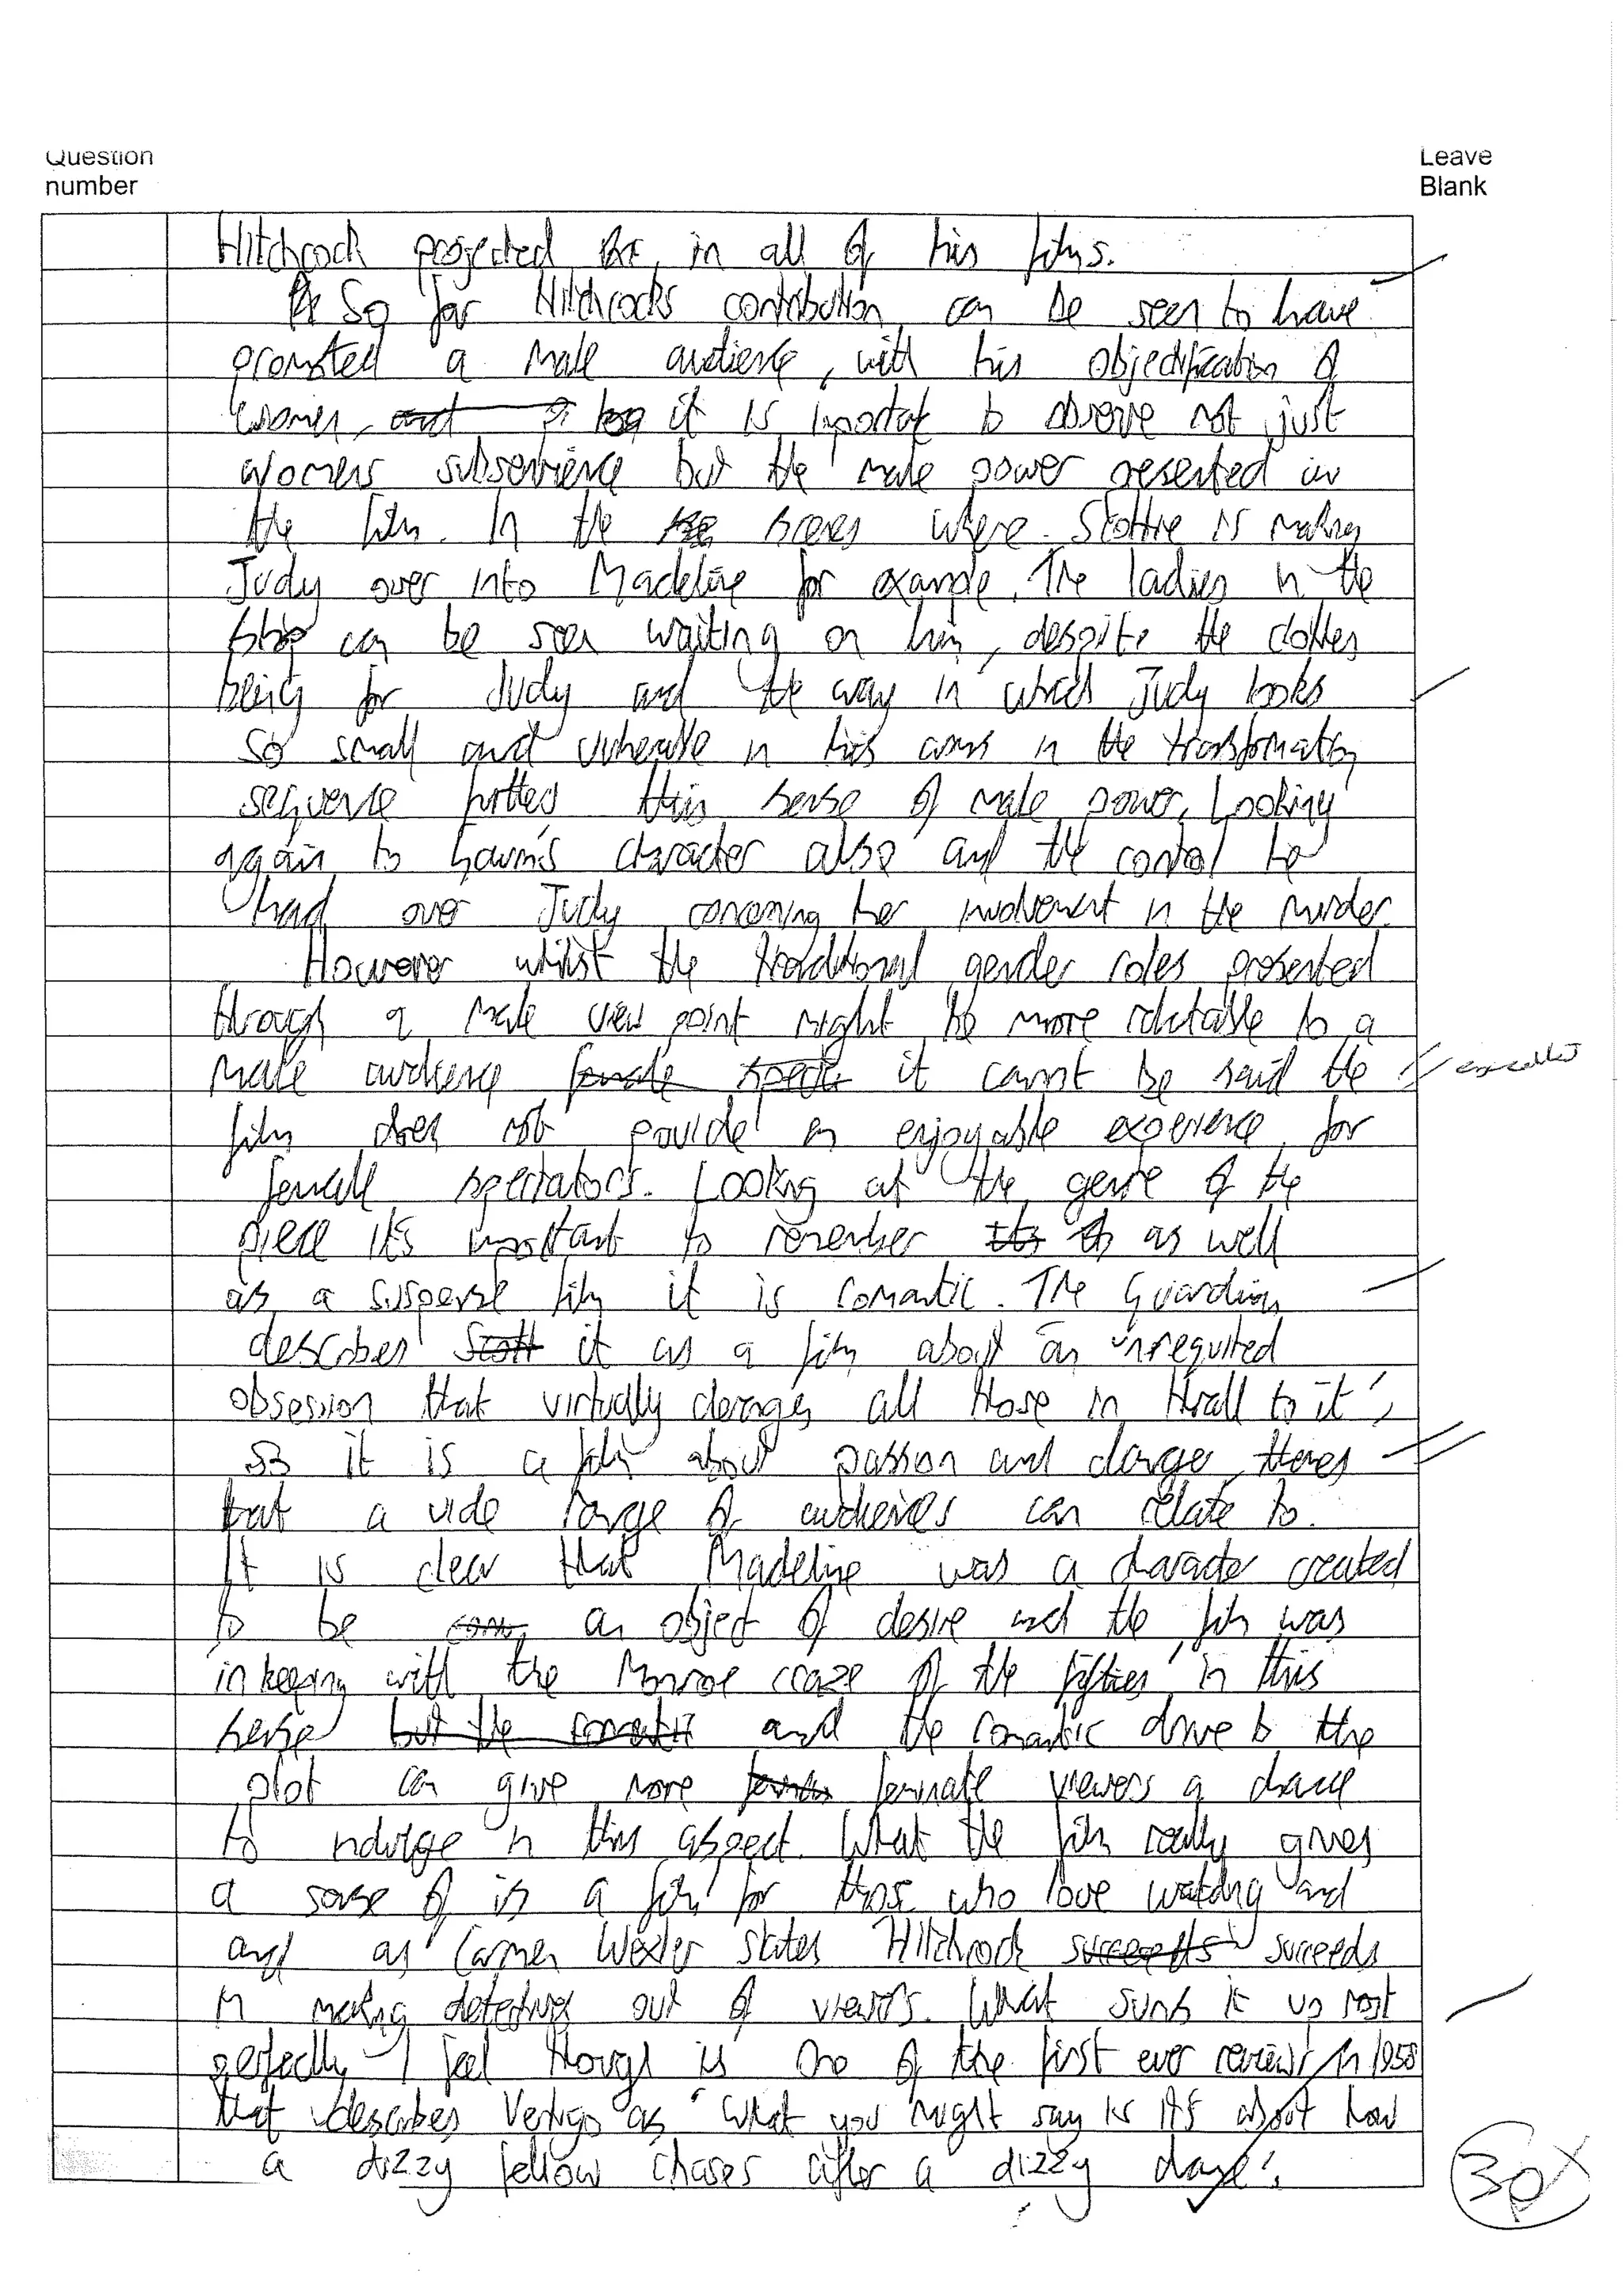 Question
number
Leave
Blank
Hitchcock projected in all of his films.
So far Hitchcocks contribution can be seen to have
promoted a male audience, with his objectification of
women, it is importat to observe not just
womens subservience but the male power presented in
the film. In the scenes where Scottie is making
Judy over into Madeline for example. The ladies in the
shop can be seen waiting on him, despite the clothes
being for Judy and the way in which Judy looks
so small and vulnerable in his arms in the transformation
sequence furthers this sense of male power. Looking
again to Gavin's character also and the control he
had over Judy concerning her involvement in the murder.
However whilst the traditional gender roles presented
through a male view point might be more relatable to a
male audience female it cannot be said the
excellent
film does not provide an enjoyable experience for
female spectators. Looking at the genre of the
piece it's important to remember its as well
as a suspense film it is romantic. The Guardian
describes Scott it as a film about 'an unrequited
obsession that virtually deranges all those in thrall to it',
so it is a film about passion and danger, themes
that a wide range of audiences can relate to.
It is clear that Madeline was a character created
to be an object of desire and the film was
in keeping with the Monroe craze of the fifties in this
sense but the romantic and the romantic drive to the
plot can give more female viewers a chance
to indulge in this aspect. What the film really gives
a sense of is a film for those who love watching and
and as Carmen Wexler states Hitchcock succeeds succeeds
in making detectives out of viewers. What sums it up most
perfectly I feel though is one of the first ever reviews in 1958
that describes Vertigo as 'What you might say is it's about how
a dizzy fellow chases after a dizzy dame'.
30